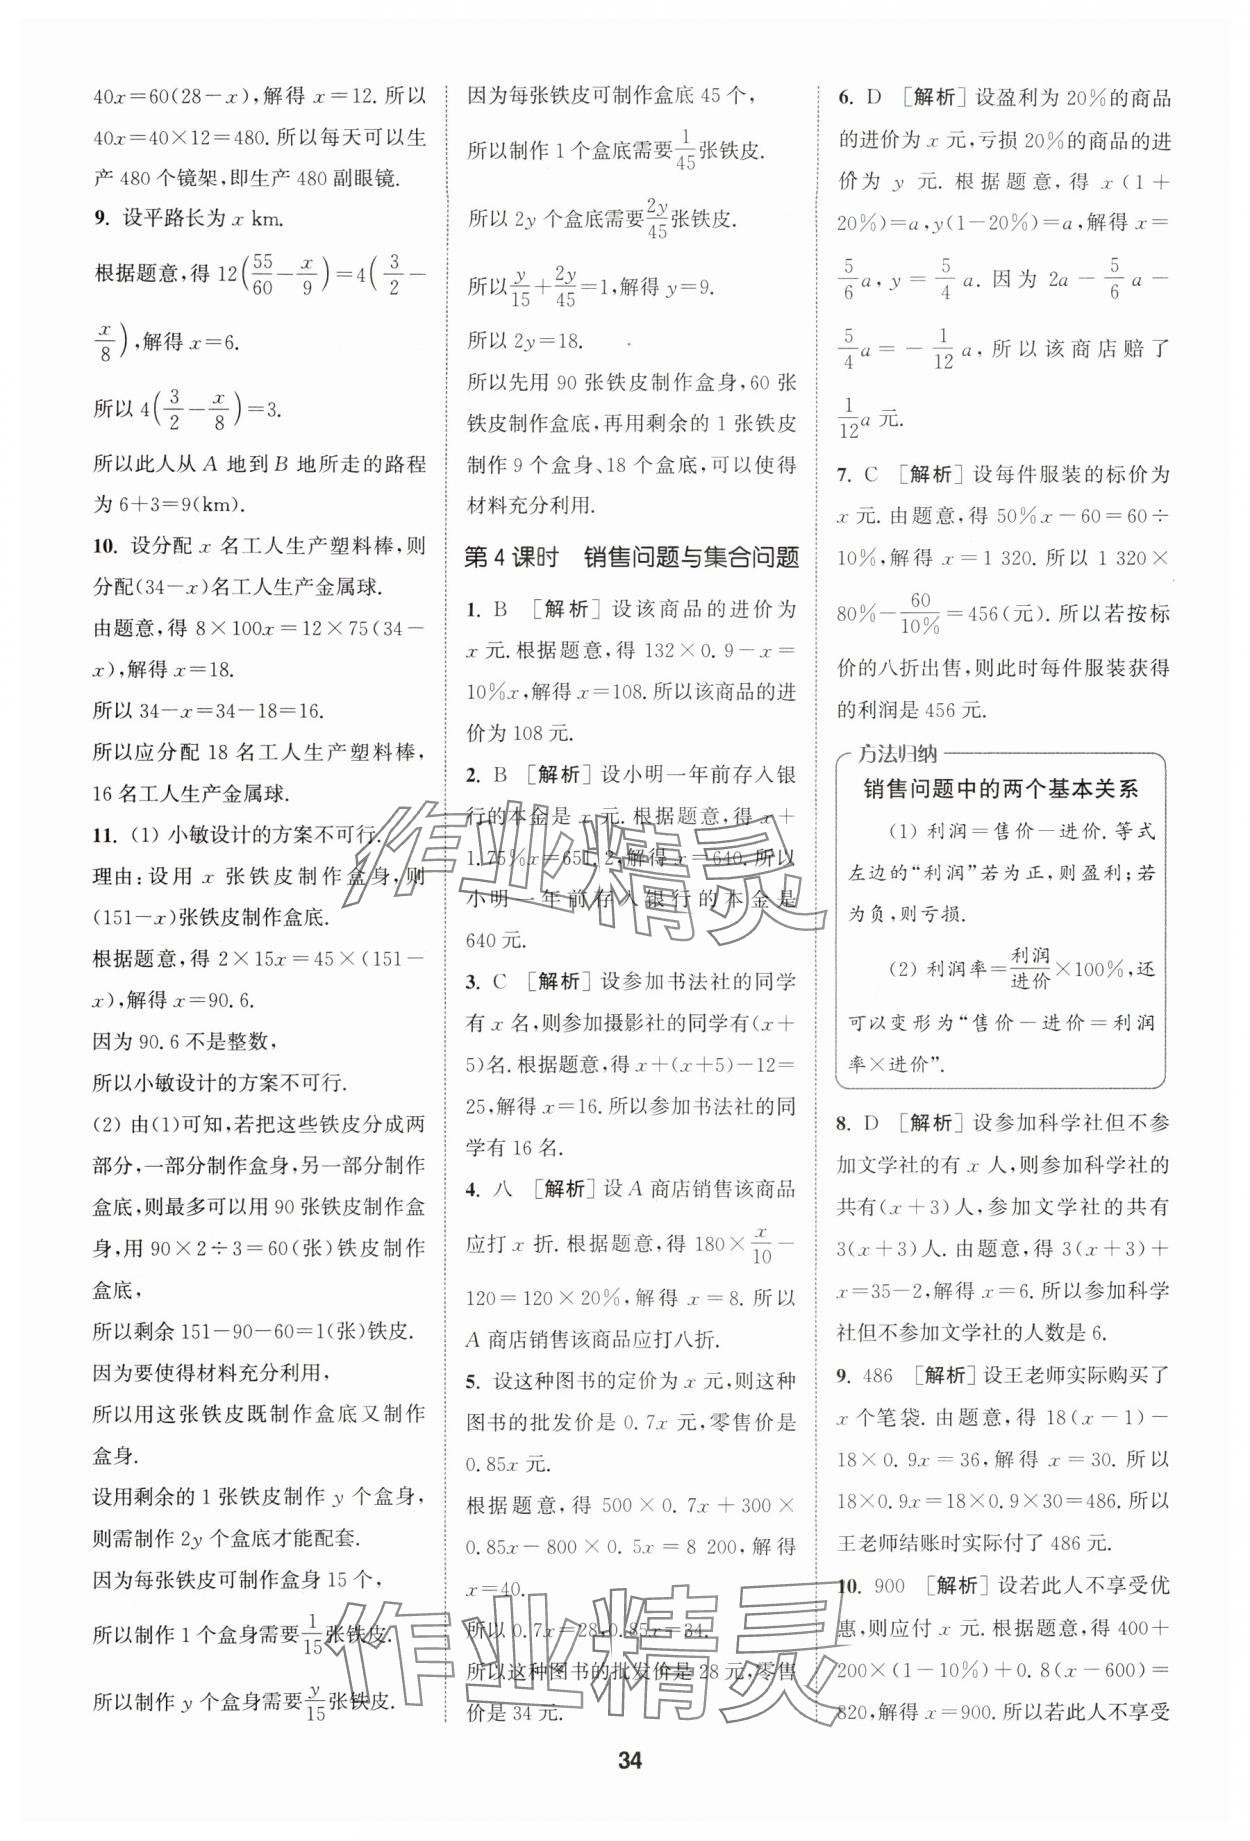 40x=60(28-x),解得 x=12. 所以
40x=40×12=480. 所以每天可以生
产 480 个镜架,即生产 480 副眼镜.
9. 设平路长为 x km.
根据题意,得 12(55/60-x/9)=4(3/2-
x/8),解得 x=6.
所以 4(3/2-x/8)=3.
所以此人从 A 地到 B 地所走的路程
为 6+3=9(km).
10. 设分配 x 名工人生产塑料棒,则
分配(34-x)名工人生产金属球.
由题意,得 8×100x=12×75(34-
x),解得 x=18.
所以 34-x=34-18=16.
所以应分配 18 名工人生产塑料棒,
16 名工人生产金属球.
11. (1) 小敏设计的方案不可行.
理由:设用 x 张铁皮制作盒身,则
(151-x)张铁皮制作盒底.
根据题意,得 2×15x=45×(151-
x),解得 x=90.6.
因为 90.6 不是整数,
所以小敏设计的方案不可行.
(2) 由(1)可知,若把这些铁皮分成两
部分,一部分制作盒身,另一部分制作
盒底,则最多可以用 90 张铁皮制作盒
身,用 90×2÷3=60(张)铁皮制作
盒底,
所以剩余 151-90-60=1(张)铁皮.
因为要使得材料充分利用,
所以用这张铁皮既制作盒底又制作
盒身.
设用剩余的 1 张铁皮制作 y 个盒身,
则需制作 2y 个盒底才能配套.
因为每张铁皮可制作盒身 15 个,
所以制作 1 个盒身需要 1/15 张铁皮.
所以制作 y 个盒身需要 y/15 张铁皮.
因为每张铁皮可制作盒底 45 个,
所以制作 1 个盒底需要 1/45 张铁皮.
所以 2y 个盒底需要 2y/45 张铁皮.
所以 y/15+2y/45=1,解得 y=9.
所以 2y=18.
所以先用 90 张铁皮制作盒身,60 张
铁皮制作盒底,再用剩余的 1 张铁皮
制作 9 个盒身、18 个盒底,可以使得
材料充分利用.
第 4 课时 销售问题与集合问题
1. B [解析] 设该商品的进价为
x 元.根据题意,得 132×0.9-x=
10%x,解得 x=108. 所以该商品的进
价为 108 元.
2. B [解析] 设小明一年前存入银
行的本金是 x 元.根据题意,得 x+
1.75%x=651.2,解得 x=640. 所以
小明一年前存入银行的本金是
640 元.
3. C [解析] 设参加书法社的同学
有 x 名,则参加摄影社的同学有(x+
5)名. 根据题意,得 x+(x+5)-12=
25,解得 x=16. 所以参加书法社的同
学有 16 名.
4. 八 [解析] 设 A 商店销售该商品
应打 x 折. 根据题意,得 180×x/10-
120=120×20%,解得 x=8. 所以
A 商店销售该商品应打八折.
5. 设这种图书的定价为 x 元,则这种
图书的批发价是 0.7x 元,零售价是
0.85x 元.
根据题意,得 500×0.7x+300×
0.85x-800×0.5x=8 200,解得
x=40.
所以 0.7x=28,0.85x=34.
所以这种图书的批发价是 28 元,零售
价是 34 元.
6. D [解析] 设盈利为 20%的商品
的进价为 x 元,亏损 20%的商品的进
价为 y 元. 根据题意,得 x(1+
20%)=a,y(1-20%)=a,解得 x=
5/6 a,y=5/4 a. 因为 2a-5/6 a-
5/4 a=-1/12 a,所以该商店赔了
1/12 a 元.
7. C [解析] 设每件服装的标价为
x 元. 由题意,得 50%x-60=60÷
10%,解得 x=1 320. 所以 1 320×
80%-60/10%=456(元). 所以若按标
价的八折出售,则此时每件服装获得
的利润是 456 元.
方法归纳
销售问题中的两个基本关系
(1) 利润=售价-进价. 等式
左边的“利润”若为正,则盈利;若
为负,则亏损.
(2) 利润率=利润/进价×100%,还
可以变形为“售价-进价=利润
率×进价”.
8. D [解析] 设参加科学社但不参
加文学社的有 x 人,则参加科学社的
共有(x+3)人,参加文学社的共有
3(x+3)人. 由题意,得 3(x+3)+
x=35-2,解得 x=6. 所以参加科学
社但不参加文学社的人数是 6.
9. 486 [解析] 设王老师实际购买了
x 个笔袋. 由题意,得 18(x-1)-
18×0.9x=36,解得 x=30. 所以
18×0.9x=18×0.9×30=486. 所以
王老师结账时实际付了 486 元.
10. 900 [解析] 设若此人不享受优
惠,则应付 x 元. 根据题意,得 400+
200×(1-10%)+0.8(x-600)=
820,解得 x=900. 所以若此人不享受
作业精灵
作业精灵
34